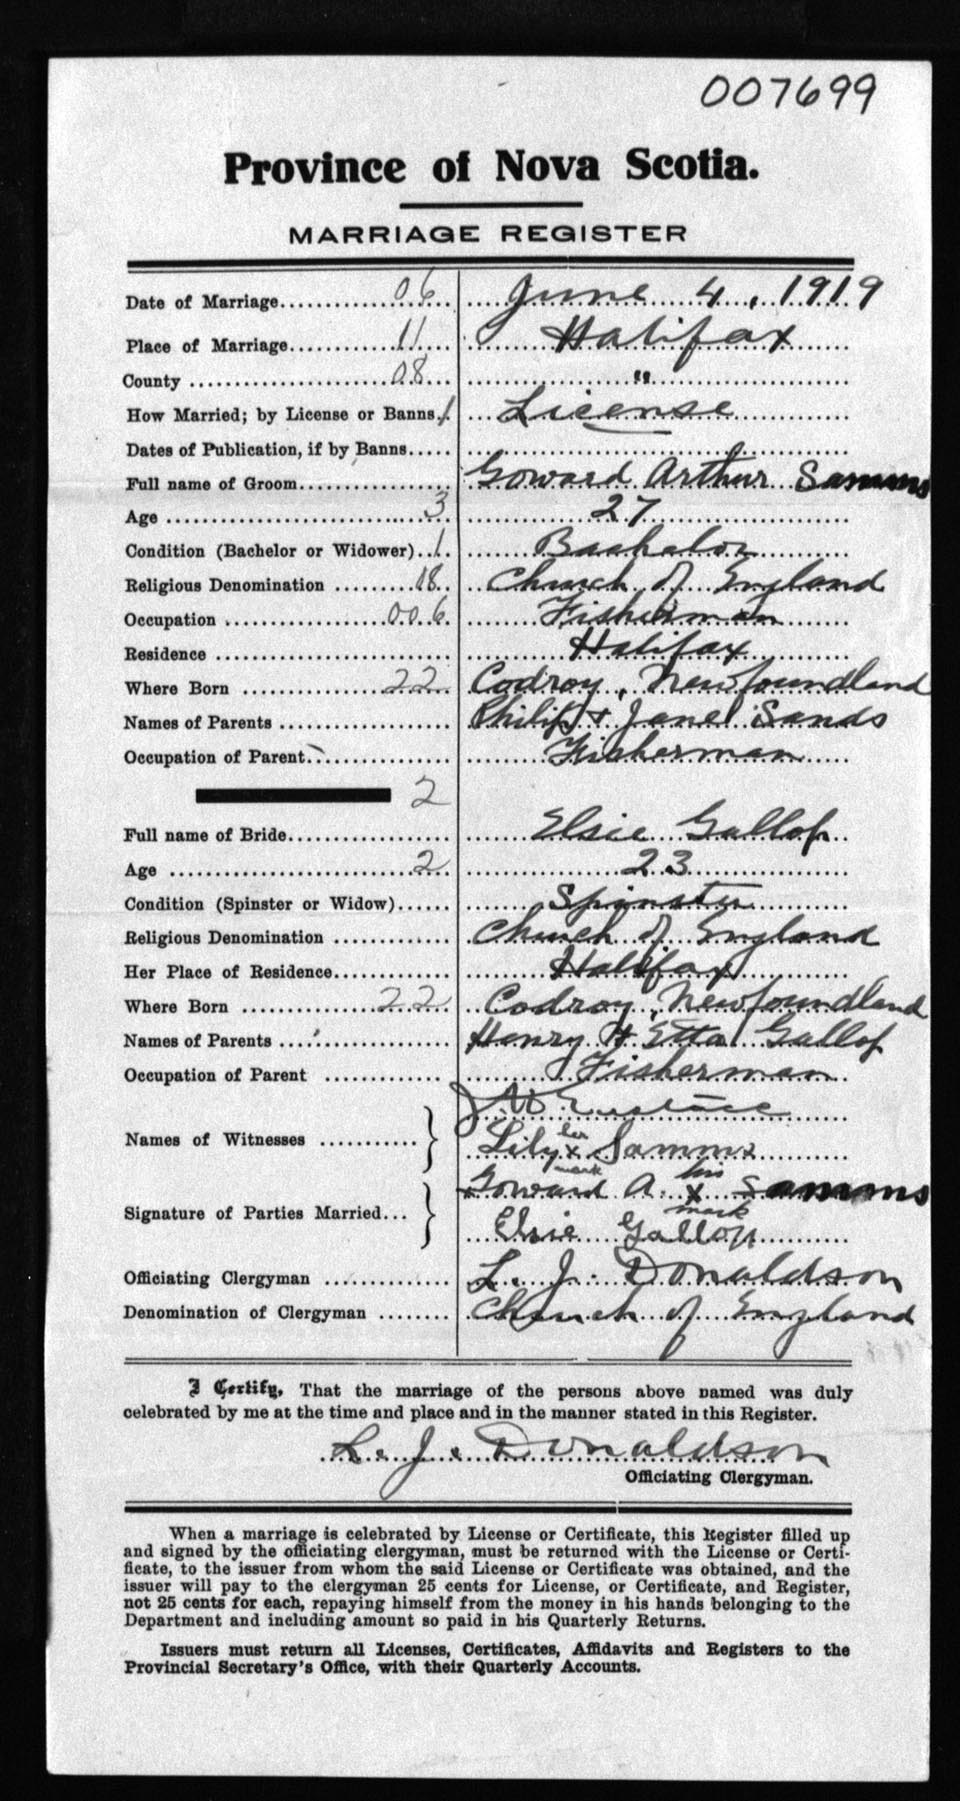 007699
Province of Nova Scotia.
MARRIAGE REGISTER
Date of Marriage 06 June 4, 1919
Place of Marriage 11 Halifax
County 08 "
How Married; by License or Banns 1 License
Dates of Publication, if by Banns
Full name of Groom Goward Arthur Samms
Age 3 27
Condition (Bachelor or Widower) 1 Bachelor
Religious Denomination 18 Church of England
Occupation 006 Fisherman
Residence Halifax
Where Born 22 Codroy, Newfoundland
Names of Parents Philip + Janel Sands
Occupation of Parent Fisherman
2
Full name of Bride Elsie Gallop
Age 2 23
Condition (Spinster or Widow) Spinster
Religious Denomination Church of England
Her Place of Residence Halifax
Where Born 22 Codroy, Newfoundland
Names of Parents Henry + Etta Gallop
Occupation of Parent Fisherman
Eustace
Names of Witnesses
Lily her x mark Samms
Goward A. his x mark Samms
Signature of Parties Married
Elsie Gallop
Officiating Clergyman L. J. Donaldson
Denomination of Clergyman Church of England
I Certify, That the marriage of the persons above named was duly
celebrated by me at the time and place and in the manner stated in this Register.
L. J. Donaldson
Officiating Clergyman.
When a marriage is celebrated by License or Certificate, this Register filled up
and signed by the officiating clergyman, must be returned with the License or Certi-
ficate, to the issuer from whom the said License or Certificate was obtained, and the
issuer will pay to the clergyman 25 cents for License, or Certificate, and Register,
not 25 cents for each, repaying himself from the money in his hands belonging to the
Department and including amount so paid in his Quarterly Returns.
Issuers must return all Licenses, Certificates, Affidavits and Registers to the
Provincial Secretary's Office, with their Quarterly Accounts.